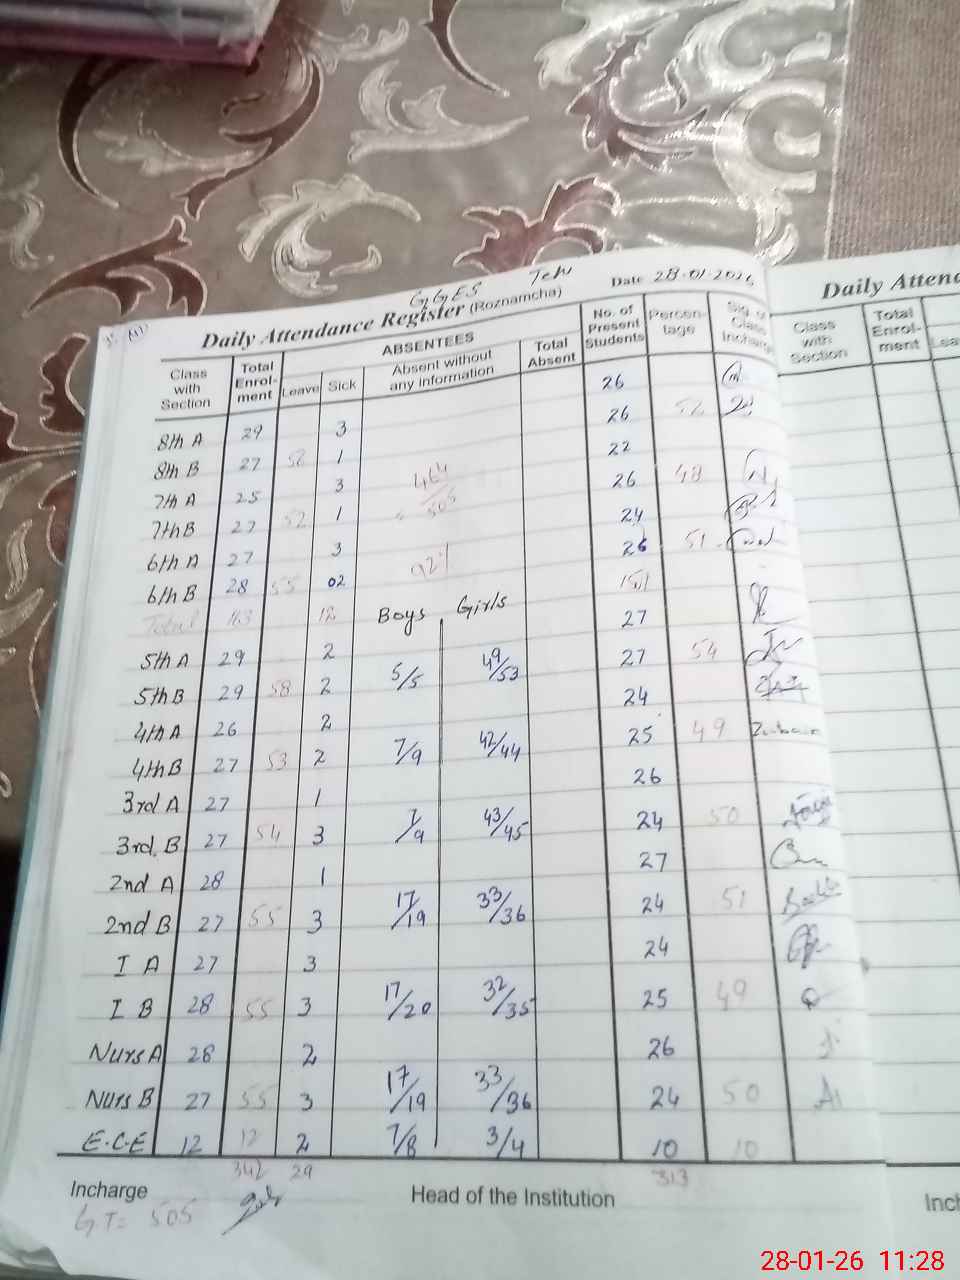 GGES
Date 28-01-2026
Daily Attendance Register (Roznamcha)
Class with Section | Total Enrol-ment | ABSENTEES | Leave | Sick | Absent without any information | Total Absent | No. of Present Students | Percen-tage | Sig. of Class Incharge
8th A 29 3 26
8th B 27 56 1 26 52
7th A 25 3 22
7th B 27 52 1 26 48
6th A 27 3 24
6th B 28 55 02 26 51
464/505
92%
Total 163 Boys Girls 151
5th A 29 2 27
5th B 29 58 2 5/5 49/53 27 54
4th A 26 2 24
4th B 27 53 2 7/9 42/44 25 49
3rd A 27 1 26
3rd. B 27 54 3 7/9 43/45 24 50
2nd A 28 1 27
2nd B 27 55 3 17/19 33/36 24 51
I A 27 3 24
I B 28 55 3 17/20 32/35 25 49
Nurs A 28 2 26
Nurs B 27 55 3 17/19 33/36 24 50
E.C.E 12 12 2 7/8 3/4 10 10
342 29 313
Incharge
Head of the Institution
GT= 505
Daily Atten
Class with Section
Total Enrol-ment
Lea
Inc
28-01-26 11:28